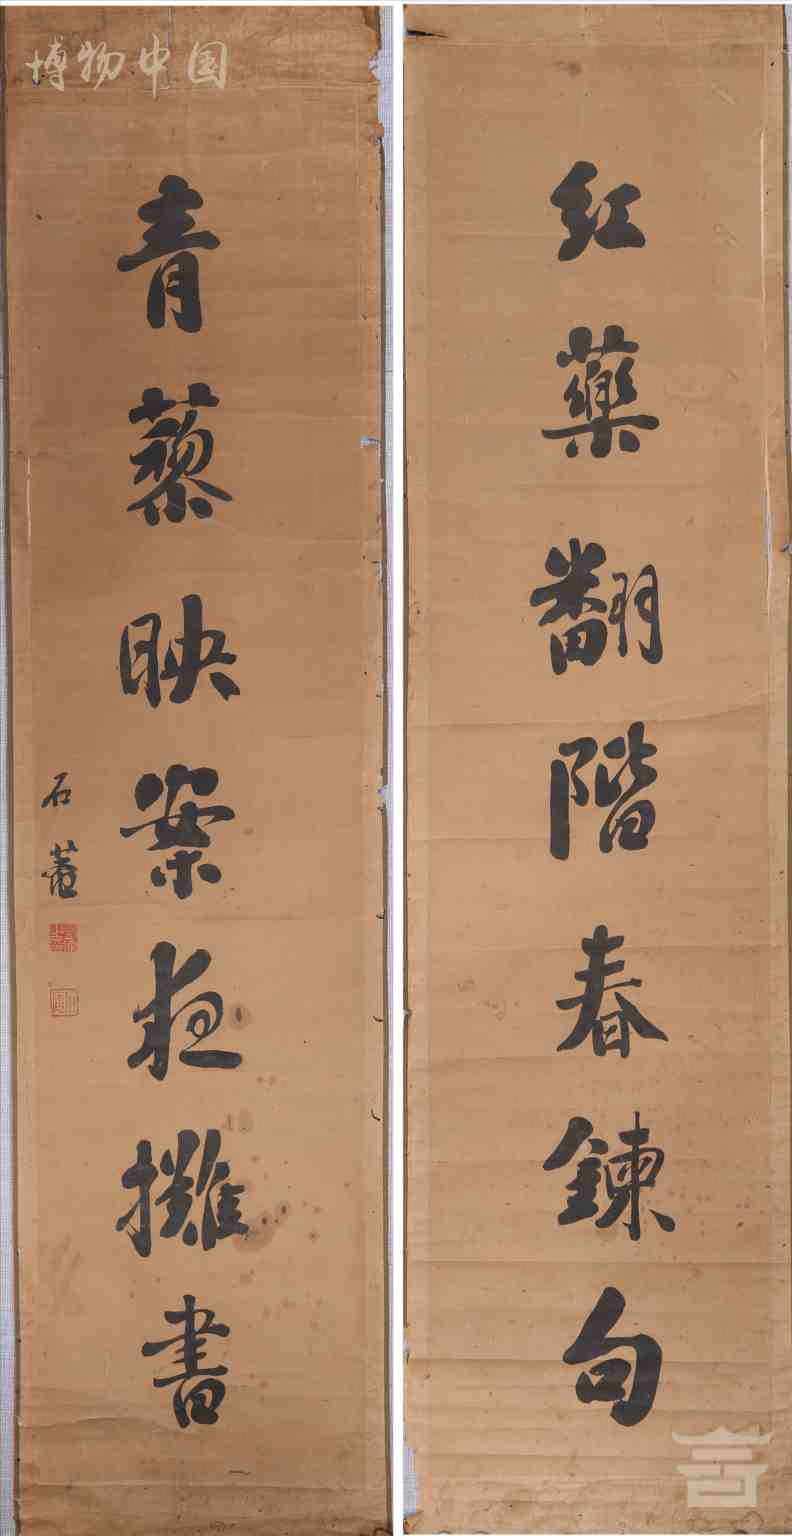 博物中国
红藥翻階春鍊句
青藜映案夜攤書
石菴